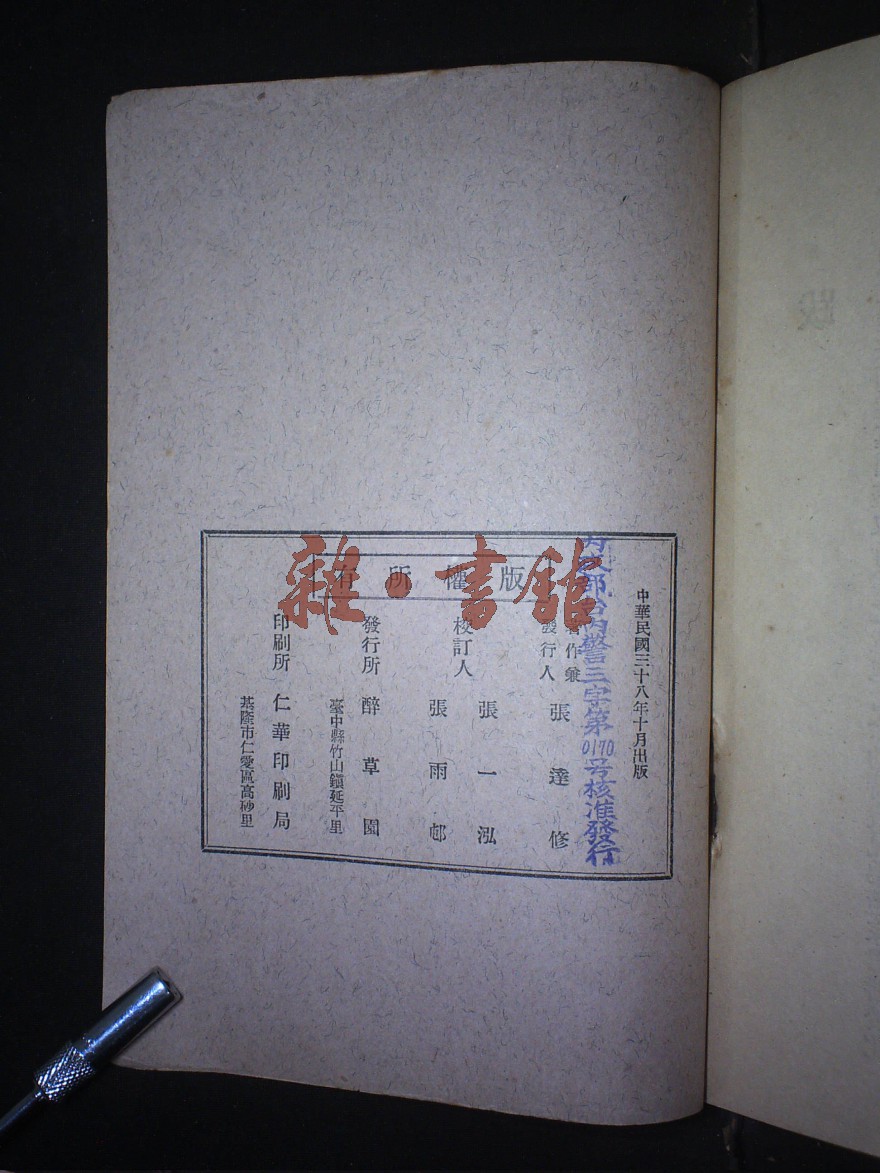 中華民國三十八年十月出版
內政部台內警三字第0170号核准發行
版權所有
著作兼
發行人
張達修
校訂人
張一泓
張雨邨
發行所
醉草園
臺中縣竹山鎭延平里
印刷所
仁華印刷局
基隆市仁愛區高砂里
雜·書館
版